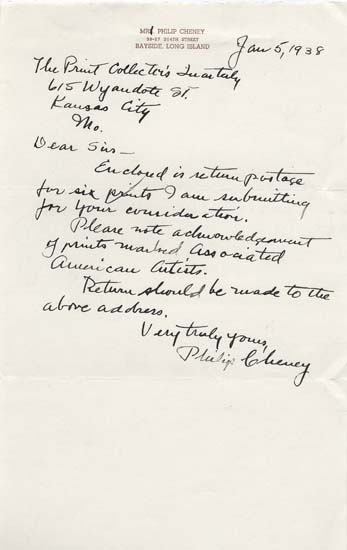 MR. PHILIP CHENEY
BAYSIDE, LONG ISLAND
Jan 5, 1938
The Print Collector's Quarterly
615 Wyandote St.
Kansas City
Mo.
Dear Sirs—
Enclosed is return postage
for six prints I am submitting
for your consideration.
Please note acknowledgement
of prints marked Associated
American Artists.
Return should be made to the
above address.
Very truly yours,
Philip Cheney